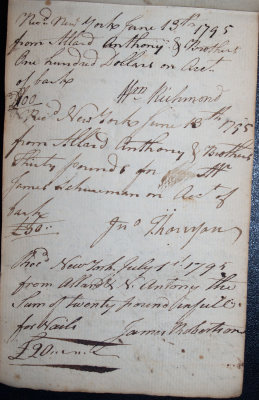 Recd New York June 13th 1795
from Allard Anthony & Brothers
One hundred Dollars on Acct
of bark
£100 Wm Richmond
Recd New York June 13th 1795
from Allard Anthony & Brothers
Thirty pounds for Mr
James on Acct of
bark
£30 Jno Thomson
Recd New York July 1st 1795
from Allard & N. Antony the
Sum of twenty pound in full
for Nails James Robertson
£20